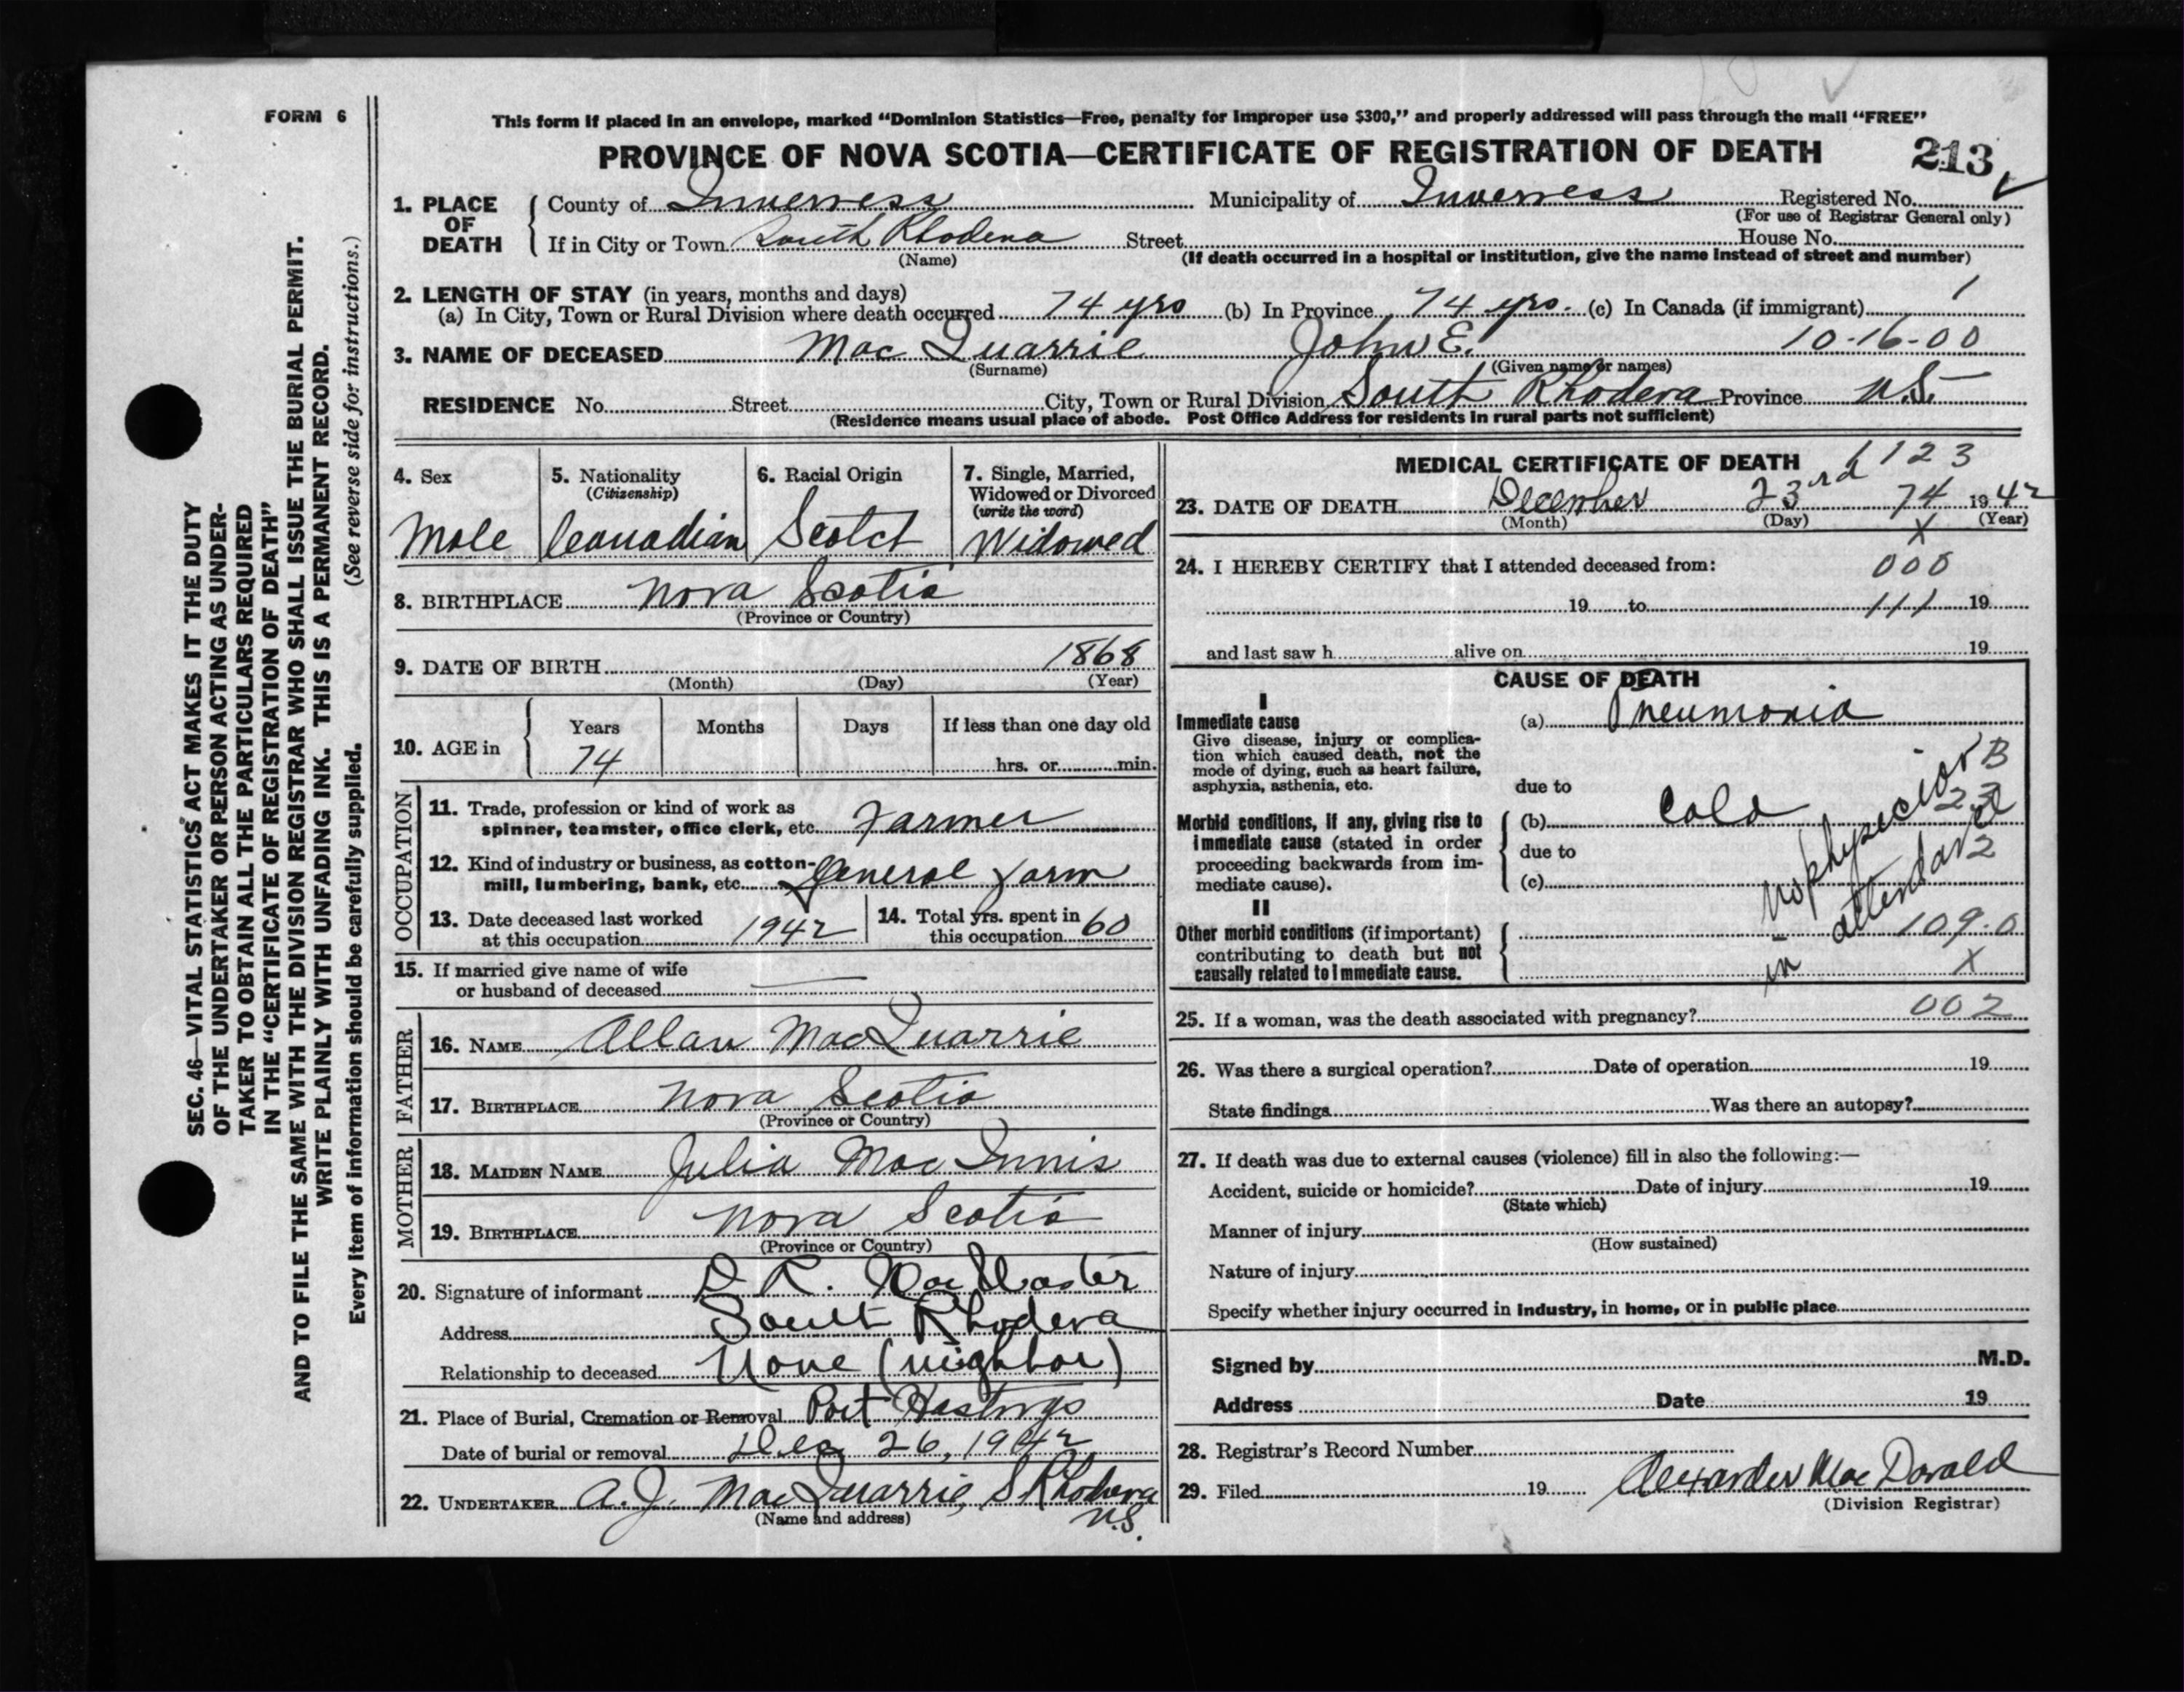 FORM 6
This form if placed in an envelope, marked "Dominion Statistics—Free, penalty for improper use $300," and properly addressed will pass through the mail "FREE"
PROVINCE OF NOVA SCOTIA—CERTIFICATE OF REGISTRATION OF DEATH 213
1. PLACE OF DEATH { County of Inverness Municipality of Inverness Registered No.
(For use of Registrar General only)
If in City or Town South Rhodena Street House No.
(Name) (If death occurred in a hospital or institution, give the name instead of street and number)
2. LENGTH OF STAY (in years, months and days) 1
(a) In City, Town or Rural Division where death occurred 74 yrs (b) In Province 74 yrs. (c) In Canada (if immigrant)
3. NAME OF DECEASED Mac Quarrie John E. 10-16-00
(Surname) (Given name or names)
RESIDENCE No. Street City, Town or Rural Division South Rhodena Province N.S.
(Residence means usual place of abode. Post Office Address for residents in rural parts not sufficient)
4. Sex
Male
5. Nationality
(Citizenship)
Canadian
6. Racial Origin
Scotch
7. Single, Married,
Widowed or Divorced
(write the word)
Widowed
8. BIRTHPLACE Nova Scotia
(Province or Country)
9. DATE OF BIRTH 1868
(Month) (Day) (Year)
10. AGE in { Years Months Days If less than one day old
74 hrs. or min.
OCCUPATION
11. Trade, profession or kind of work as
spinner, teamster, office clerk, etc. Farmer
12. Kind of industry or business, as cotton-
mill, lumbering, bank, etc. General Farm
13. Date deceased last worked
at this occupation 1942
14. Total yrs. spent in
this occupation 60
15. If married give name of wife
or husband of deceased —
FATHER
16. NAME Allan MacQuarrie
17. BIRTHPLACE Nova Scotia
(Province or Country)
MOTHER
18. MAIDEN NAME Julia Mac Innis
19. BIRTHPLACE Nova Scotia
(Province or Country)
20. Signature of informant D R. MacMaster
Address South Rhodena
Relationship to deceased None (neighbor)
21. Place of Burial, Cremation or Removal Port Hastings
Date of burial or removal Dec 26, 1942
22. UNDERTAKER A. J. MacQuarrie, S Rhodena
(Name and address) N.S.
MEDICAL CERTIFICATE OF DEATH 1123
23. DATE OF DEATH December 23rd 74 1942
(Month) (Day) X (Year)
24. I HEREBY CERTIFY that I attended deceased from: 000
19 to 111 19
and last saw h alive on 19
CAUSE OF DEATH
I
Immediate cause (a) Pneumonia
Give disease, injury or complica-
tion which caused death, not the
mode of dying, such as heart failure,
asphyxia, asthenia, etc.
due to
Morbid conditions, if any, giving rise to
immediate cause (stated in order
proceeding backwards from im-
mediate cause).
(b) Cold
due to
(c)
no physician
in attendance
B
23
2
II
Other morbid conditions (if important)
contributing to death but not
causally related to immediate cause.
109.0
X
25. If a woman, was the death associated with pregnancy? 002
26. Was there a surgical operation? Date of operation 19
State findings Was there an autopsy?
27. If death was due to external causes (violence) fill in also the following:—
Accident, suicide or homicide? Date of injury 19
(State which)
Manner of injury
(How sustained)
Nature of injury
Specify whether injury occurred in industry, in home, or in public place
Signed by M.D.
Address Date 19
28. Registrar's Record Number
29. Filed 19 Alexander Mac Donald
(Division Registrar)
SEC. 46—VITAL STATISTICS ACT MAKES IT THE DUTY
OF THE UNDERTAKER OR PERSON ACTING AS UNDER-
TAKER TO OBTAIN ALL THE PARTICULARS REQUIRED
IN THE "CERTIFICATE OF REGISTRATION OF DEATH"
AND TO FILE THE SAME WITH THE DIVISION REGISTRAR WHO SHALL ISSUE THE BURIAL PERMIT.
WRITE PLAINLY WITH UNFADING INK. THIS IS A PERMANENT RECORD.
(See reverse side for instructions.)
Every item of information should be carefully supplied.